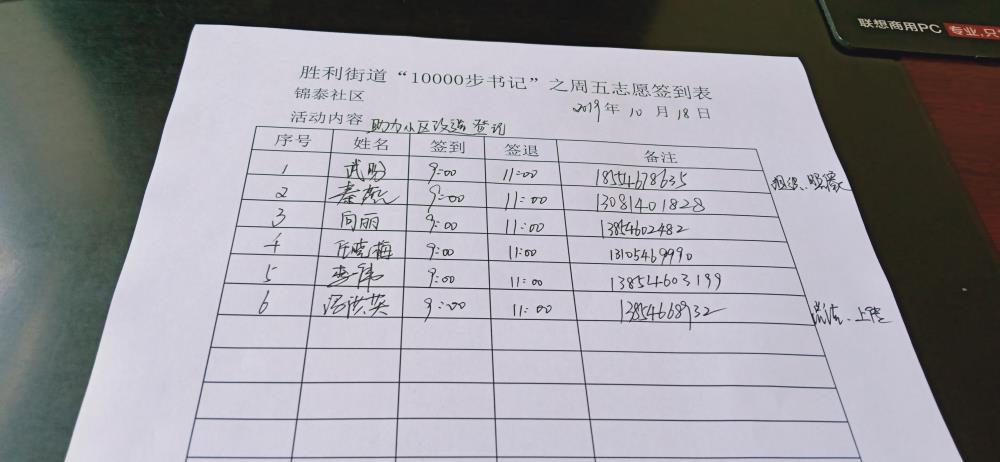 联想商用PC 专业,只
胜利街道“10000步书记”之周五志愿签到表
锦泰社区 2019年 10 月 18 日
活动内容 助力小区改造登记
序号 姓名 签到 签退 备注
1 武 9:00 11:00 18554678635
2 秦燕 9:00 11:00 13081401828
3 向丽 9:00 11:00 13854602482
4 任晓梅 9:00 11:00 13105469990
5 李伟 9:00 11:00 13854603199
6 洪英 9:00 11:00 13854668932